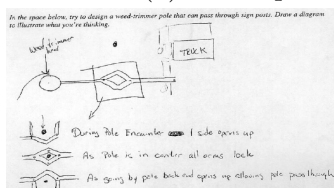 In the space below, try to design a weed-trimmer pole that can pass through sign posts. Draw a diagram
to illustrate what you're thinking.
weed trimmer
head
TRUCK
During Pole Encounter 1 side opens up
As Pole is in center all arms lock
As going by pole back end opens up allowing pole pass through